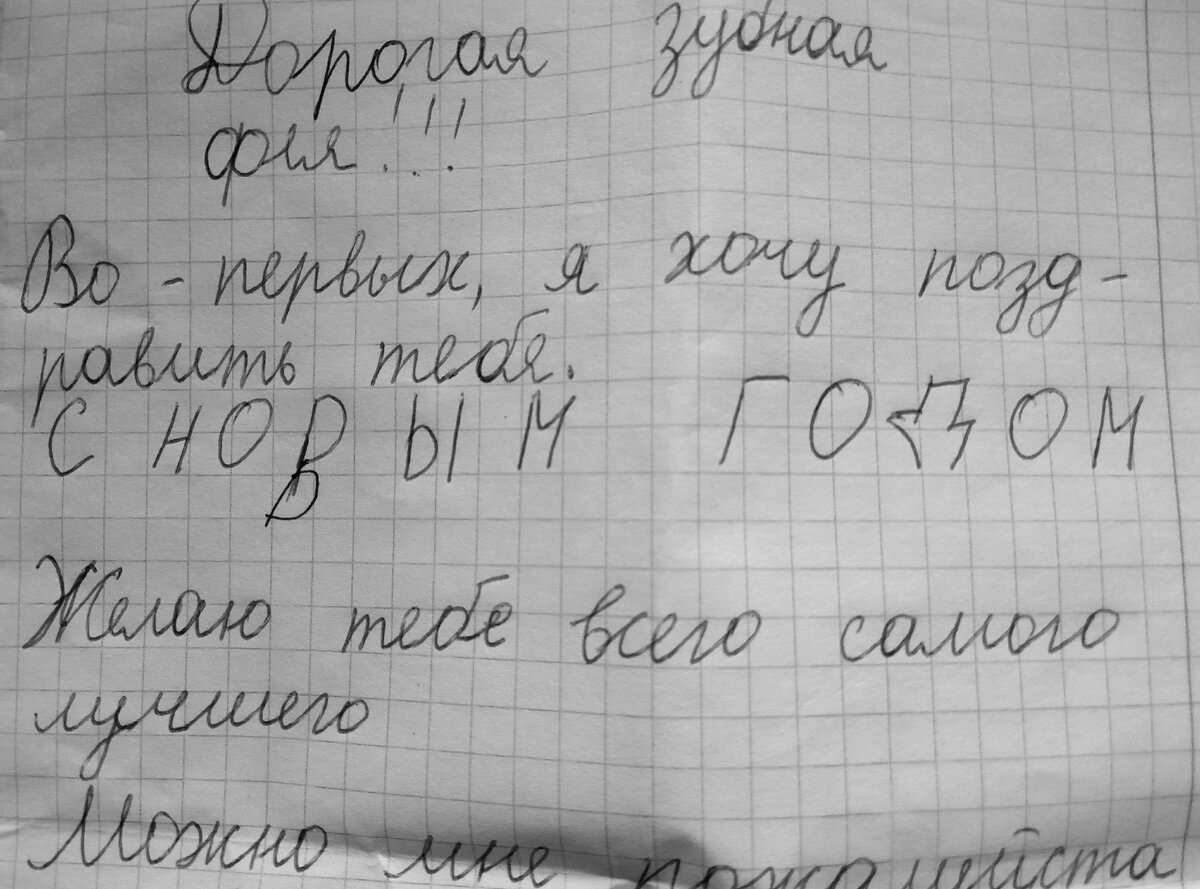 Дорогая зубная
фея!!!
Во-первых, я хочу позд-
равить тебя.
С НОВЫМ ГОДОМ
Желаю тебе всего самого
лучшего
Можно мне